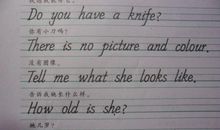 Do you have a knife?
你有小刀吗?
There is no picture and colour.
没有图像。
Tell me what she looks like.
告诉我她长什么样。
How old is she?
她几岁?